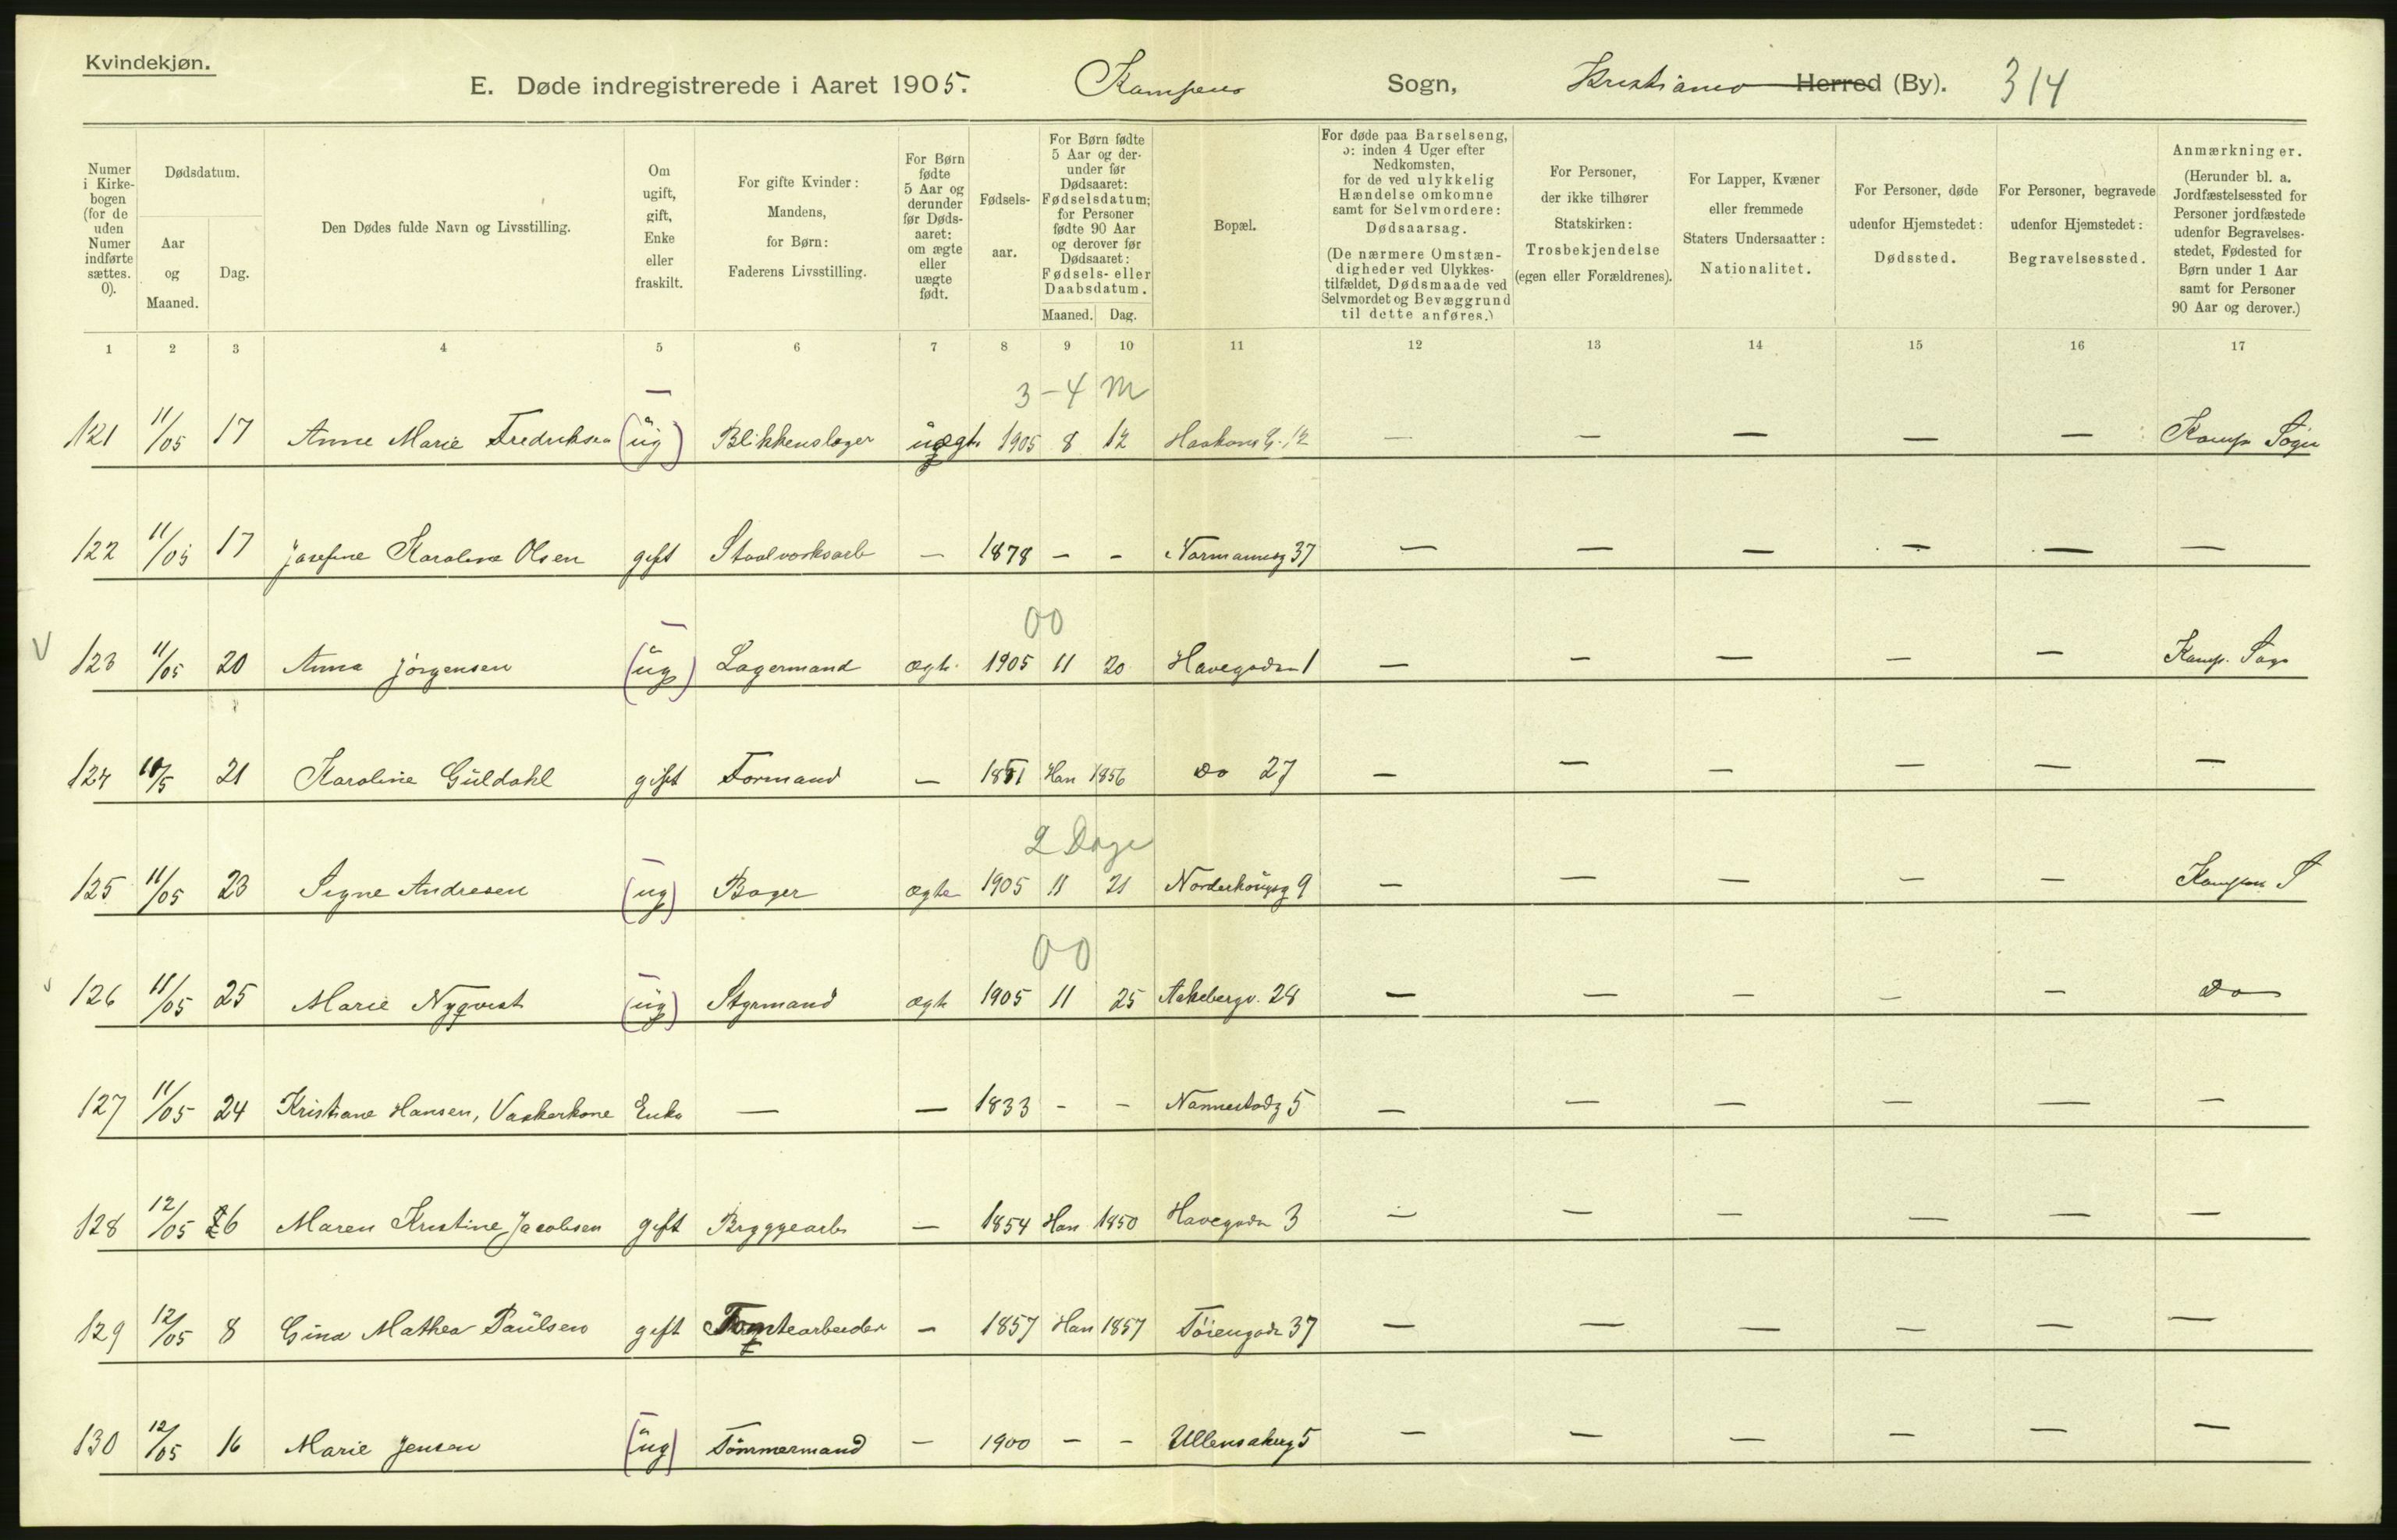 Kvindekjøn.
E. Døde indregistrerede i Aaret 1905. Kampens Sogn, Kristiania Herred (By). 314
Numer i Kirkebogen (for de uden Numer indførte sættes. 0).
Dødsdatum.
Aar og Maaned.
Dag.
Den Dødes fulde Navn og Livsstilling.
Om ugift, gift, Enke eller fraskilt.
For gifte Kvinder: Mandens, for Børn: Faderens Livsstilling.
For Børn fødte 5 Aar og derunder før Dødsaaret: om ægte eller uægte født.
Fødselsaar.
For Børn fødte 5 Aar og derunder før Dødsaaret: Fødselsdatum; for Personer fødte 90 Aar og derover før Dødsaaret: Fødsels- eller Daabsdatum.
Maaned. Dag.
Bopæl.
For døde paa Barselseng, ɔ: inden 4 Uger efter Nedkomsten, for de ved ulykkelig Hændelse omkomne samt for Selvmordere: Dødsaarsag.
(De nærmere Omstændigheder ved Ulykkestilfældet, Dødsmaade ved Selvmordet og Bevæggrund til dette anføres.)
For Personer, der ikke tilhører Statskirken: Trosbekjendelse (egen eller Forældrenes).
For Lapper, Kvæner eller fremmede Staters Undersaatter: Nationalitet.
For Personer, døde udenfor Hjemstedet: Dødssted.
For Personer, begravede udenfor Hjemstedet: Begravelsessted.
Anmærkninger.
(Herunder bl. a. Jordfæstelsessted for Personer jordfæstede udenfor Begravelsesstedet, Fødested for Børn under 1 Aar samt for Personer 90 Aar og derover.)
1 2 3 4 5 6 7 8 9 10 11 12 13 14 15 16 17
3-4 M
121 11/05 17 Anne Marie Fredriksen (ug) Blikkenslager uægte 1905 8 12 Haakons G. 12 — — — — — Kamp. Sogn
122 11/05 17 Josefine Karoline Olsen gift Staalverksarb — 1878 — — Normannsg 37 — — — — — —
00
V 123 11/05 20 Anna Jörgensen (ug) Lagermand ægte 1905 11 20 Havegaden 1 — — — — — Kamp. Sogn
124 11/5 21 Karoline Guldahl gift Formand — 1851 Han 1856 Do 27 — — — — — —
2 Dage
125 11/05 23 Signe Andresen (ug) Bager ægte 1905 11 21 Norderhougsg 9 — — — — — Kampen S
00
126 11/05 25 Marie Nyqvist (ug) Styrmand ægte 1905 11 25 Aakebergv. 28 — — — — — Do
127 11/05 24 Kristiane Hansen, Vaskerkone Enke — — 1833 — — Nannestadg 5 — — — — — —
128 12/05 26 Maren Kristine Jacobsen gift Bryggearb — 1854 Han 1850 Havegaden 3 — — — — — —
129 12/05 8 Gina Mathea Paulsen gift Tomtearbeider — 1857 Han 1857 Töiengade 37 — — — — — —
130 12/05 16 Marie Jensen (ug) Tömmermand — 1900 — — Ullensakerg 5 — — — — — —